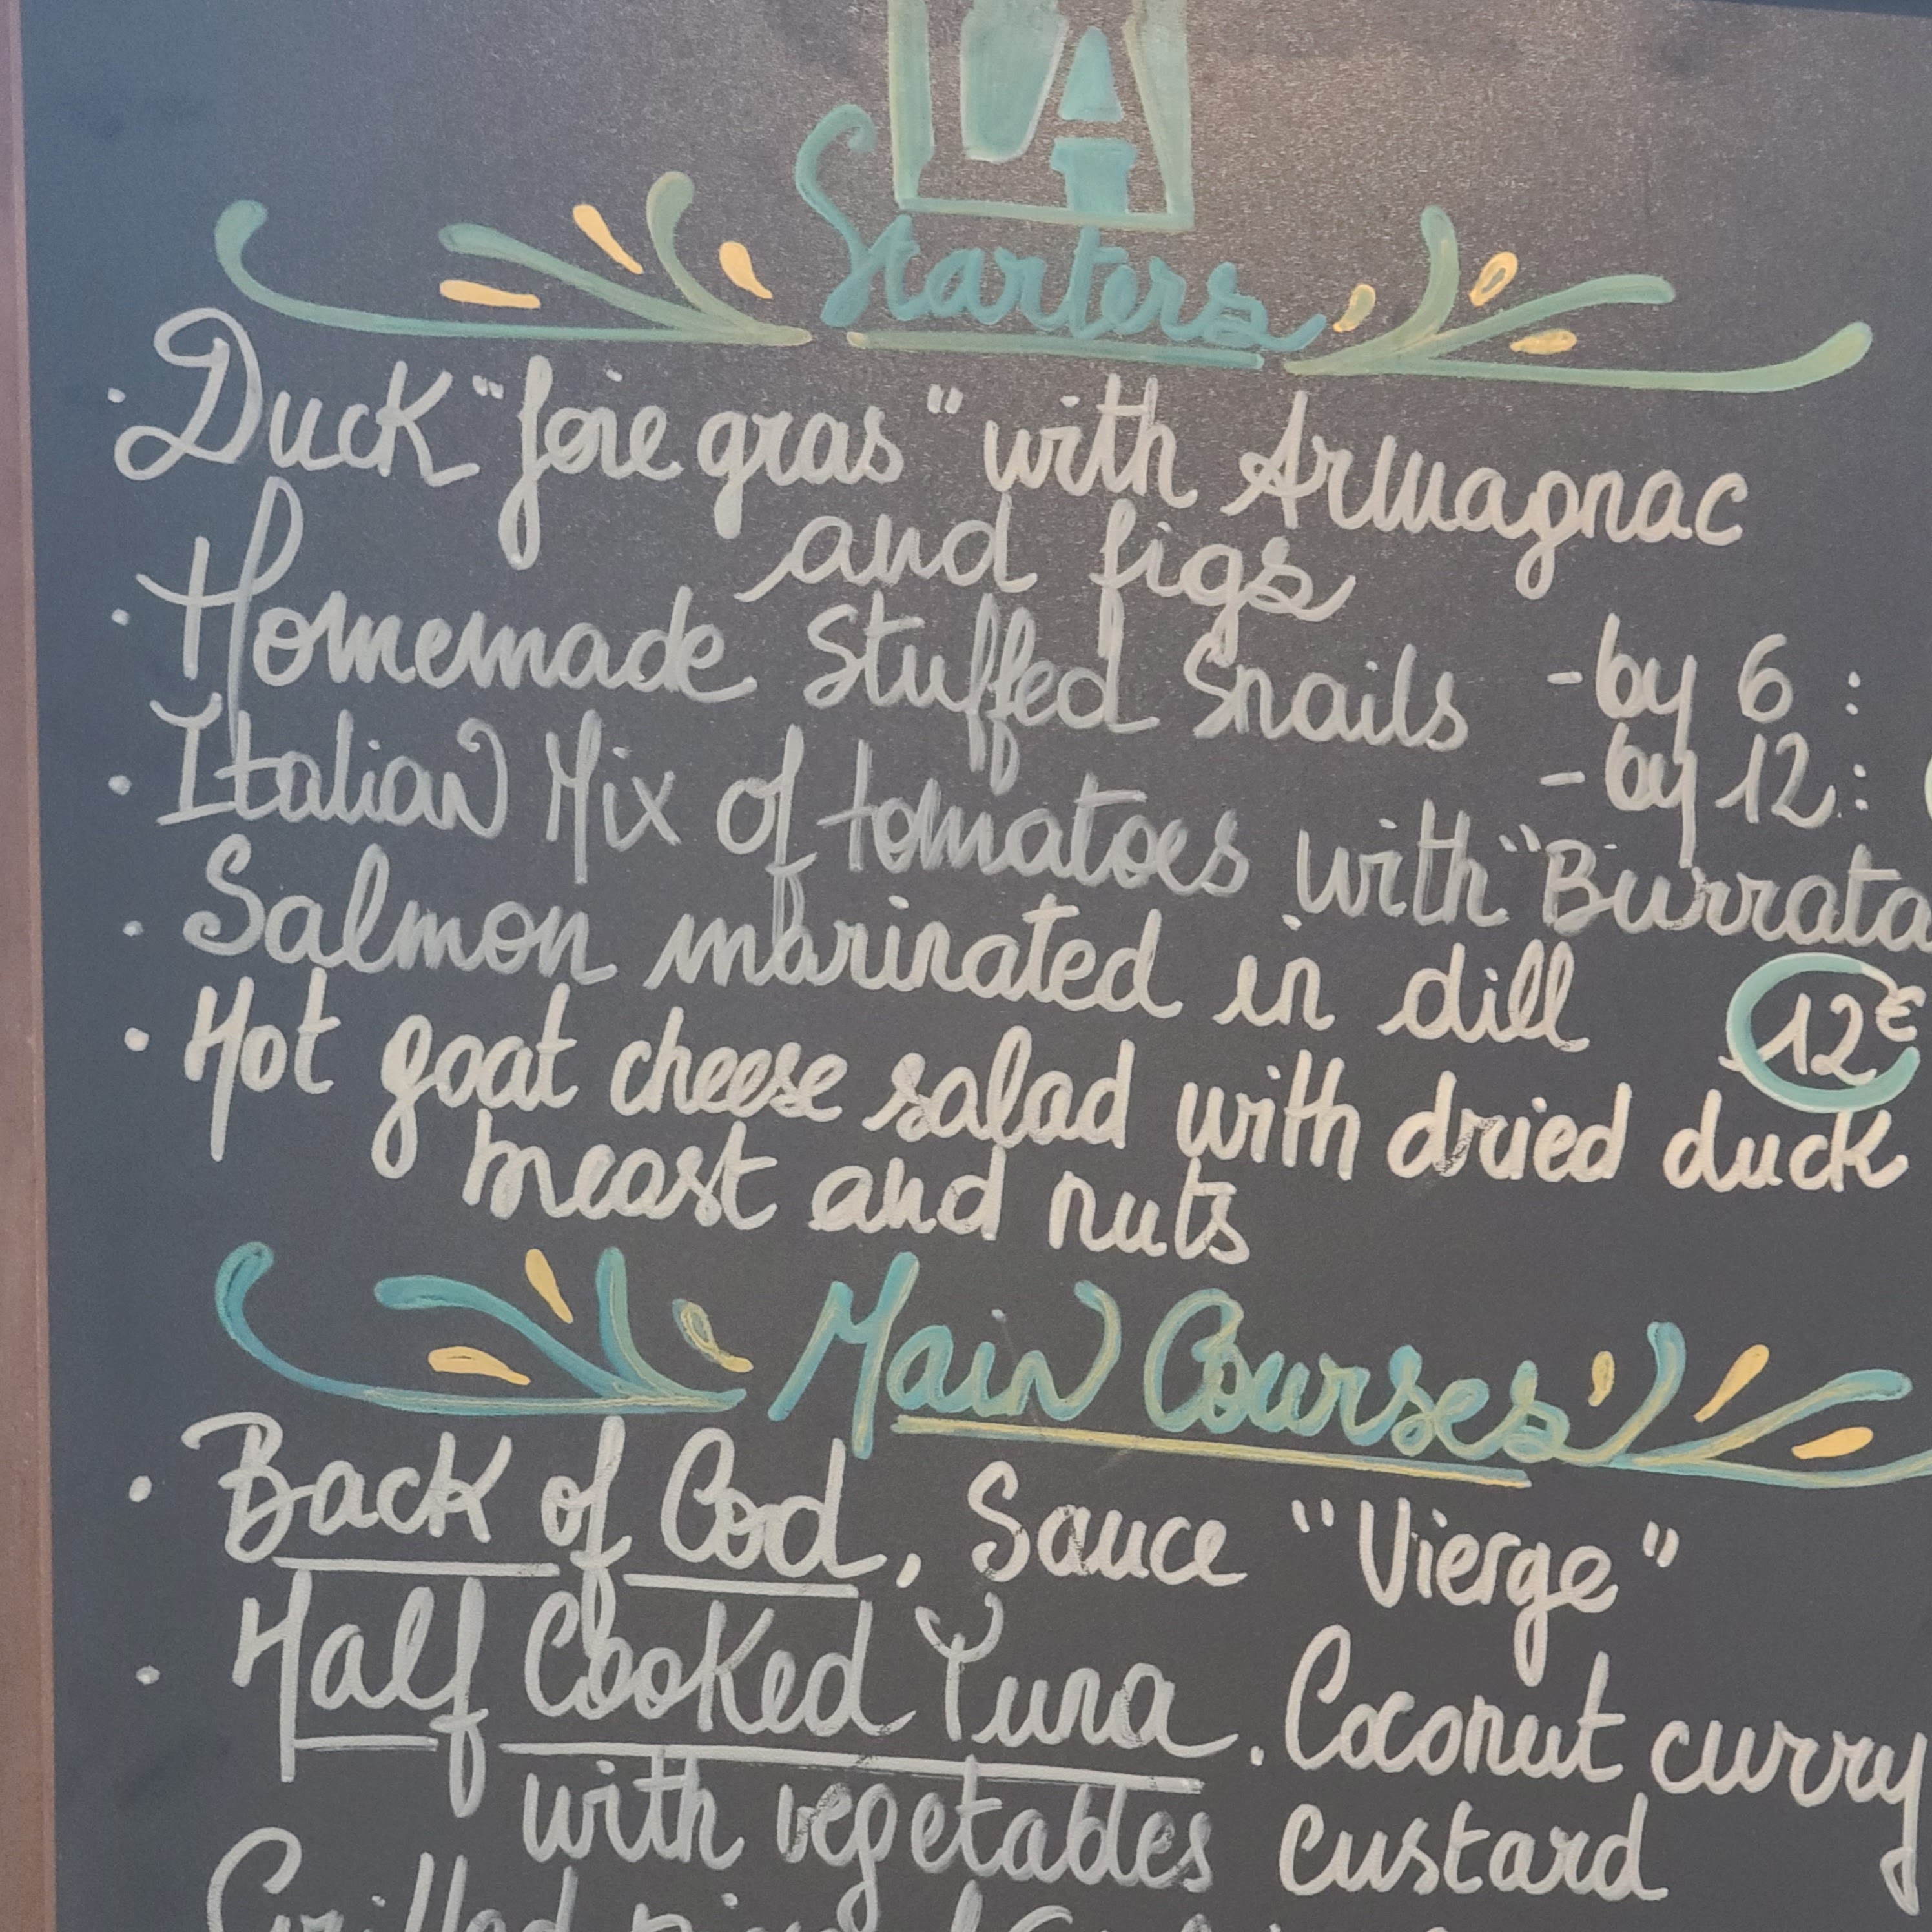 Starters
· Duck "foie gras" with Armagnac
and figs
· Homemade Stuffed Snails - by 6 :
- by 12 :
· Italian Mix of tomatoes with "Burrata
· Salmon marinated in dill 12€
· Hot goat cheese salad with dried duck
breast and nuts
Main Courses
· Back of Cod, Sauce "Vierge"
· Half Cooked Tuna. Coconut curry
with vegetables custard
Grilled